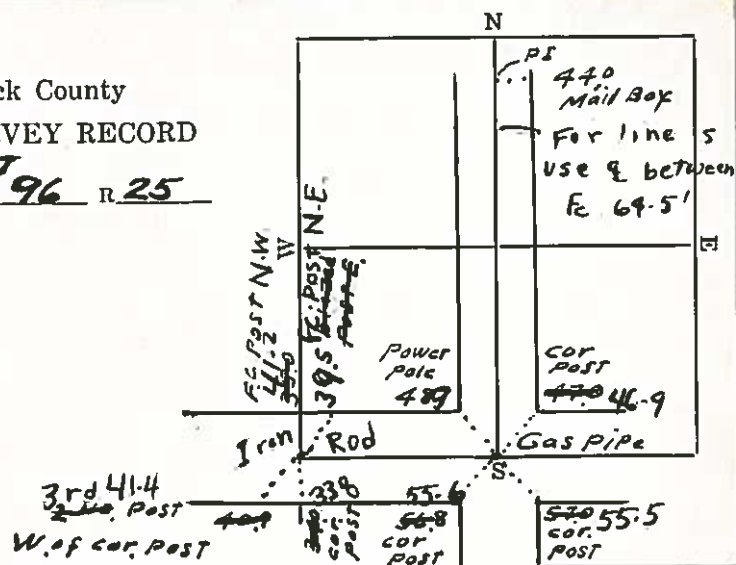 N
ck County
VEY RECORD
T 96 R 25
PI
440
Mail Box
For line s
use ℄ between
Fc 64.5'
W
E
Fc Post N.W.
41.2
Fc. Post N.E.
39.5
Power
pole
489
cor
post
47.0 46.9
Iron Rod
Gas pipe
S
3rd 41.4
Post
W. of cor. post
40.9
338
cor
post
55.6
56.8
cor
post
57.0 55.5
cor.
post